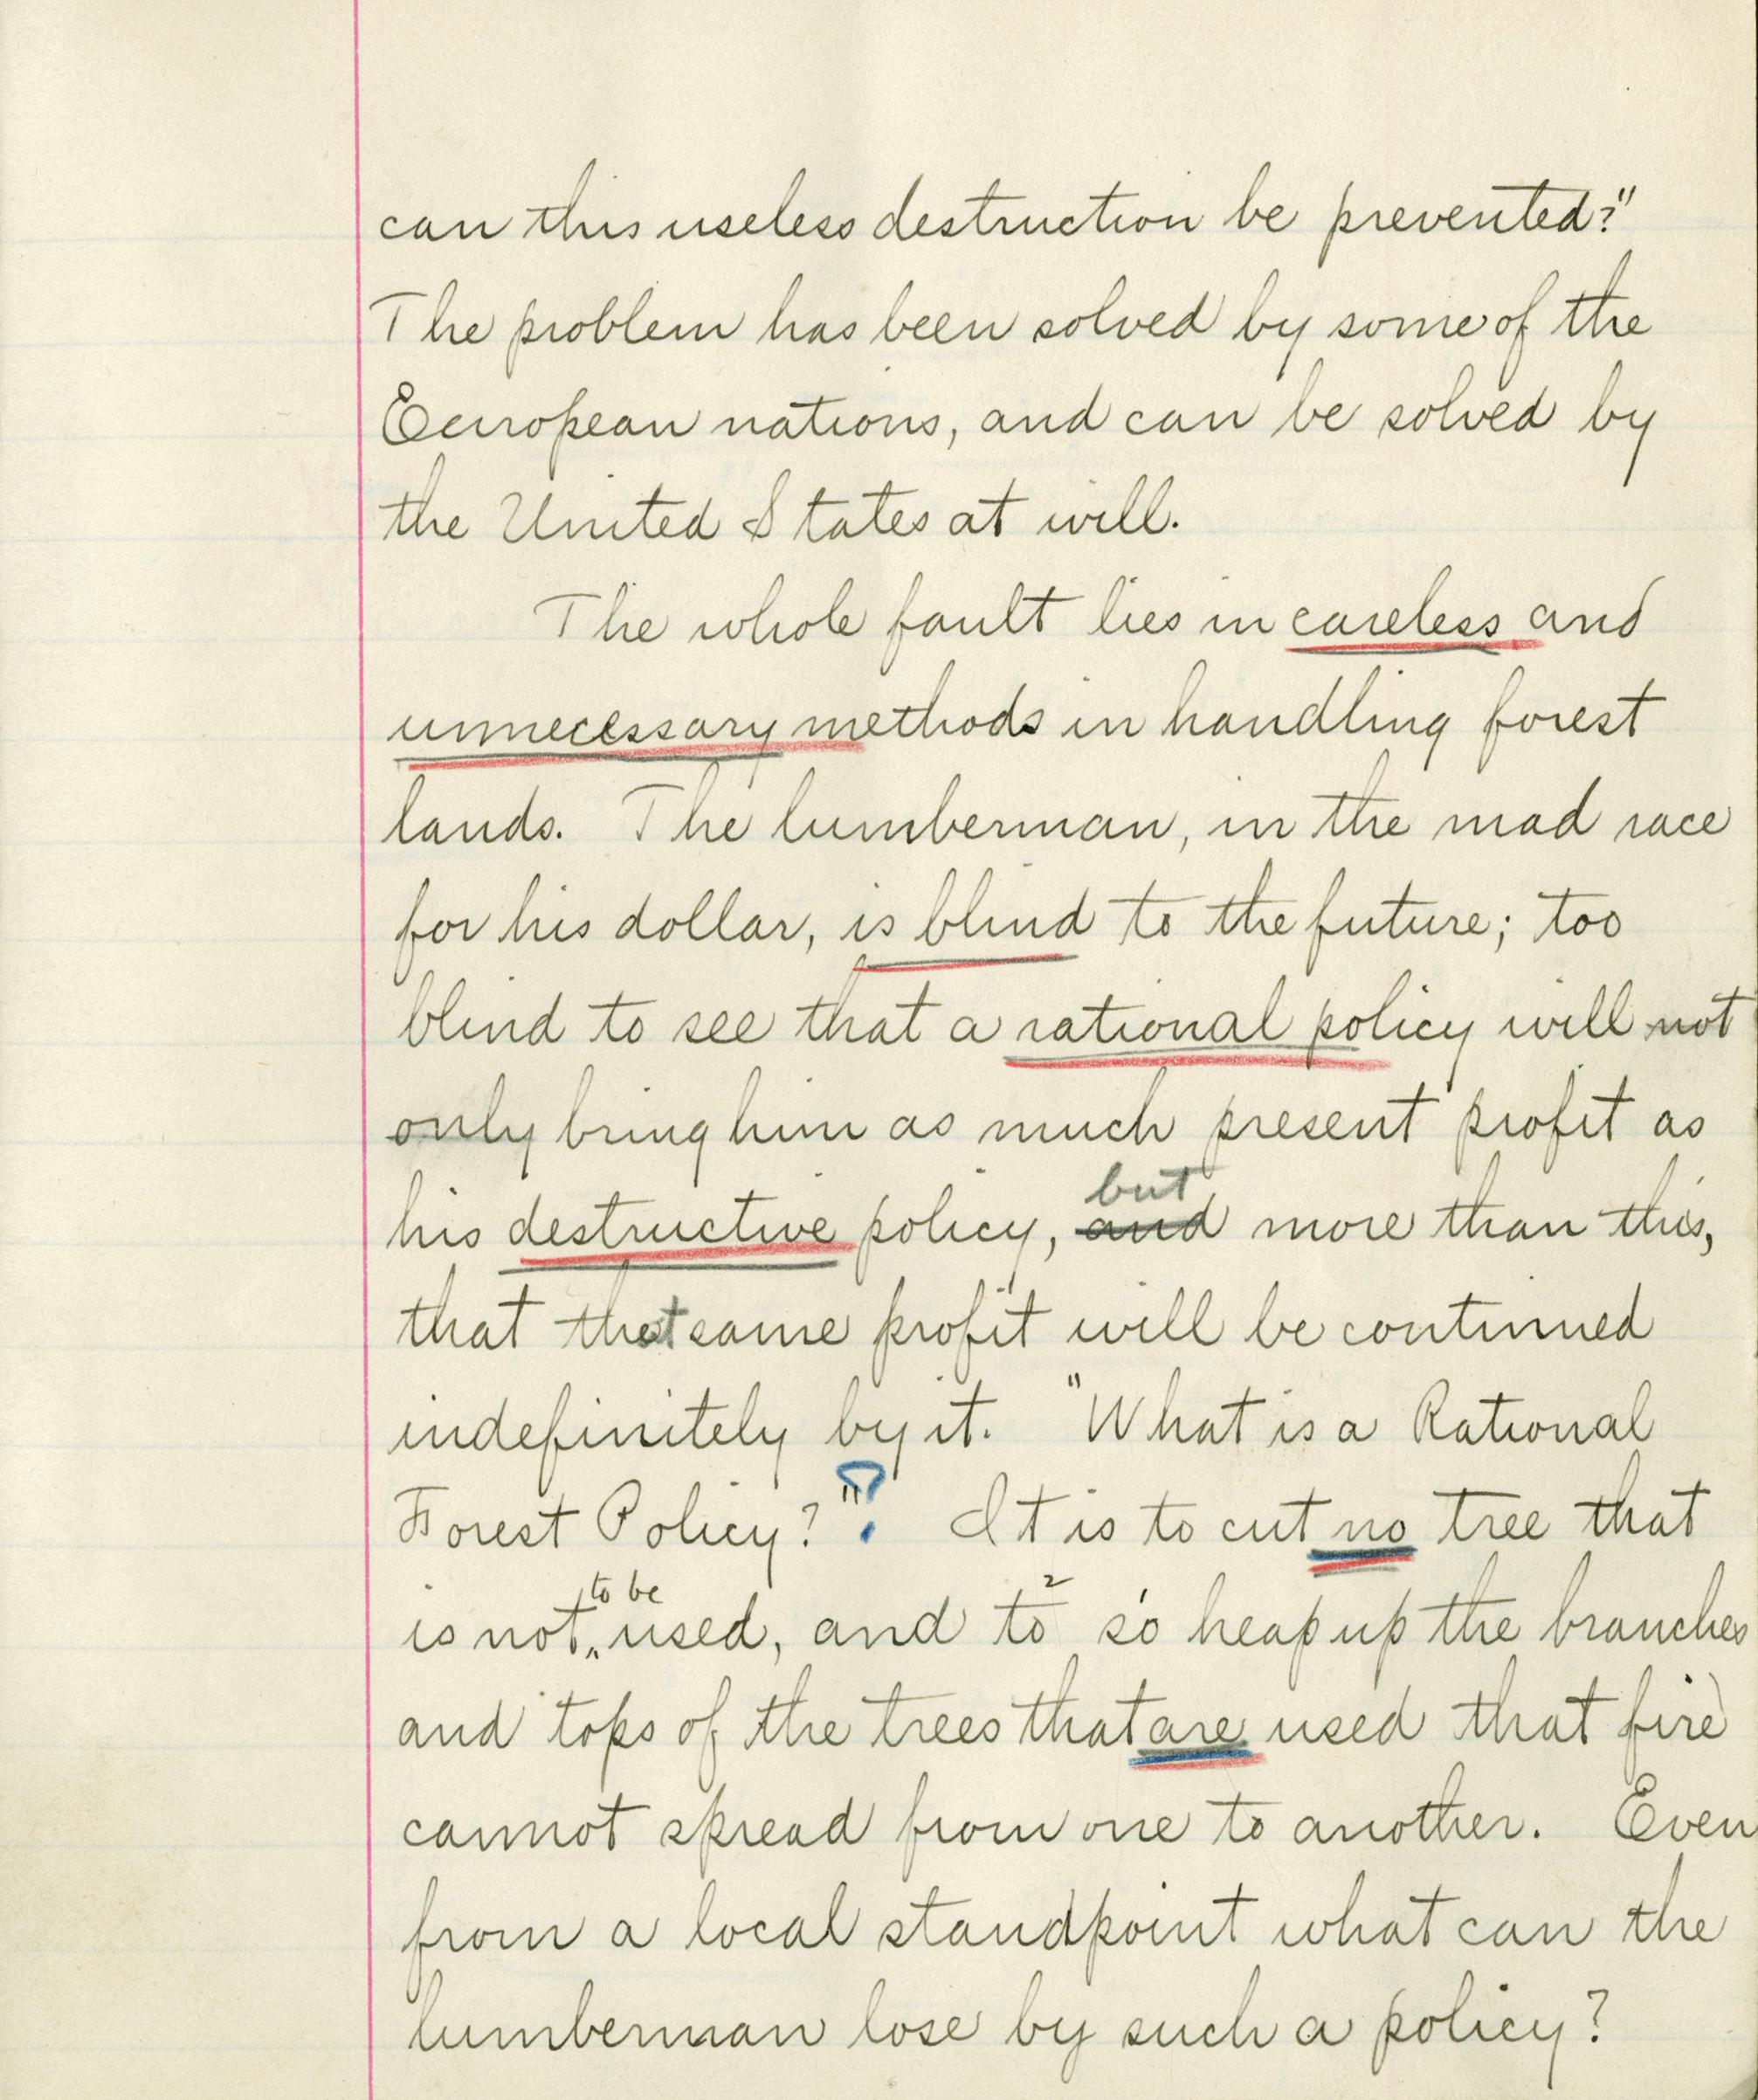 can this useless destruction be prevented?"
The problem has been solved by some of the
European nations, and can be solved by
the United States at will.
The whole fault lies in careless and
unnecessary methods in handling forest
lands. The lumberman, in the mad race
for his dollar, is blind to the future; too
blind to see that a rational policy will not
only bring him as much present profit as
but
his destructive policy, and more than this,
that that same profit will be continued
indefinitely by it. "What is a Rational
Forest Policy?" ? It is to cut no tree that
to be 2
is not used, and to so heap up the branches
and tops of the trees that are used that fire
cannot spread from one to another. Even
from a local standpoint what can the
lumberman lose by such a policy?